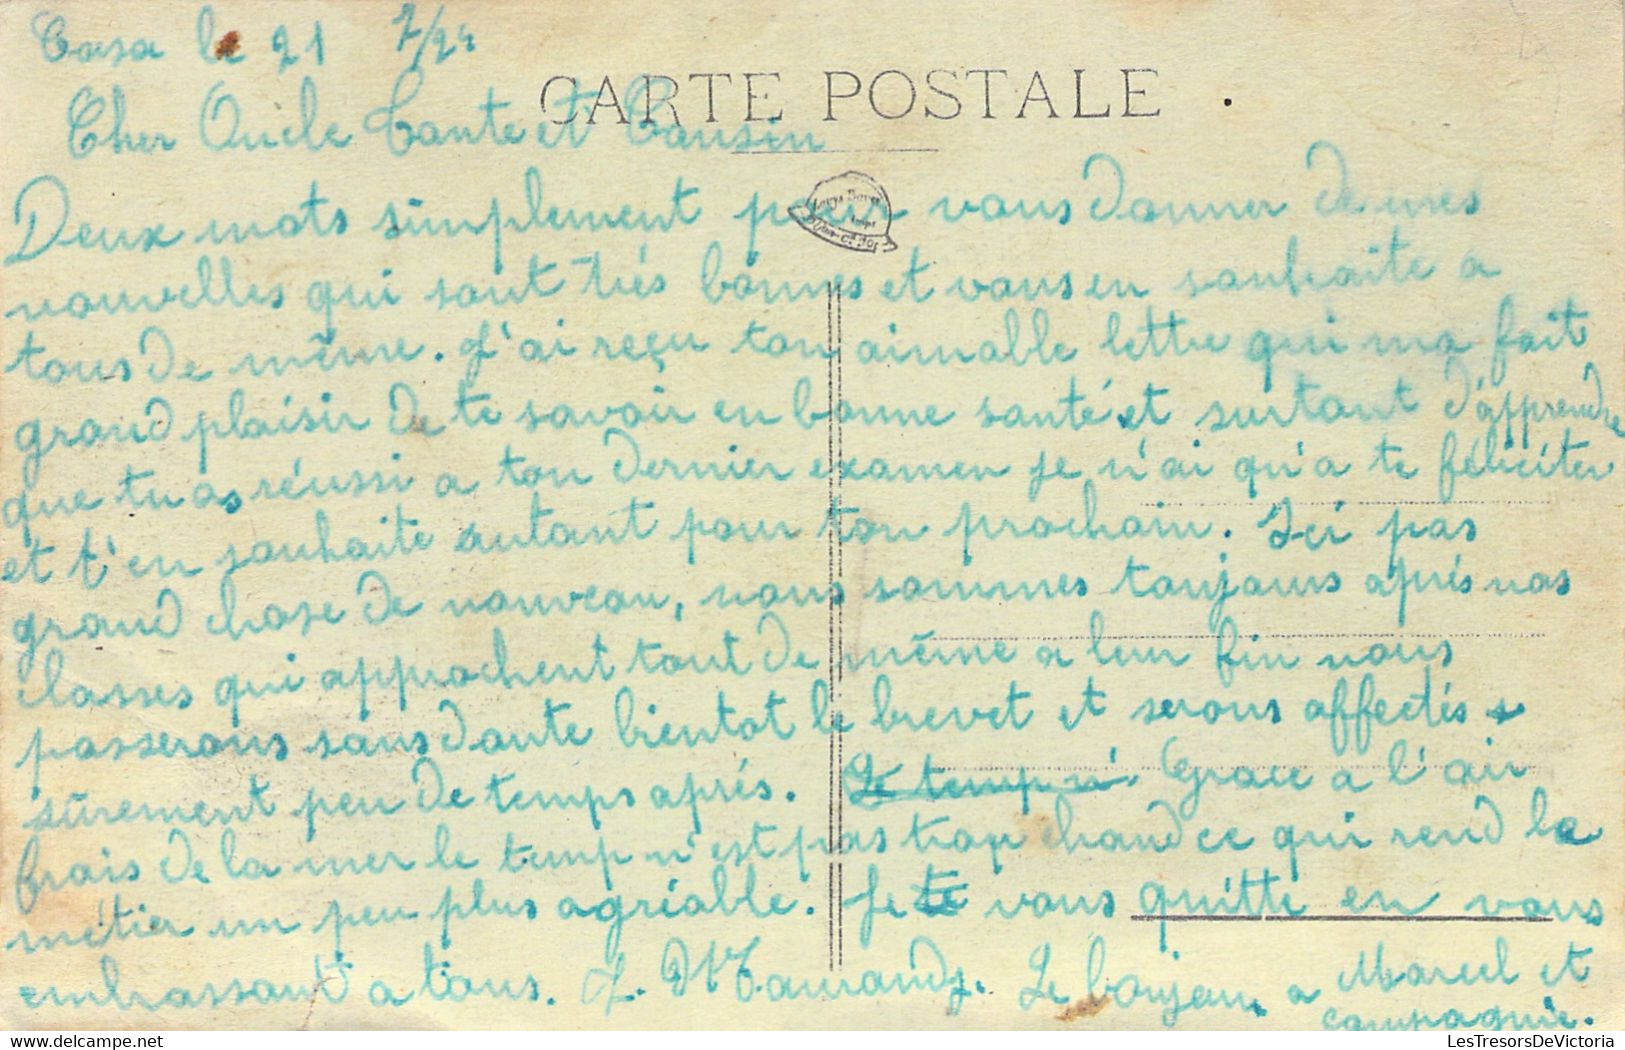 Casa le 21 7/24
CARTE POSTALE
Cher Oncle Tante et Cousin
Deux mots simplement pour vous donner de mes
nouvelles qui sont très bonnes et vous en souhaite a
tous de même. J'ai reçu ton aimable lettre qui ma fait
grand plaisir de te savoir en bonne santé et surtout d'apprendre
que tu as réussi a ton dernier examen je n'ai qu'a te féliciter
et t'en souhaite autant pour ton prochain. Ici pas
grand chose de nouveau, nous sommes toujours après nos
classes qui approchent tout de même a leur fin nous
passerons sans doute bientot le brevet et serons affectés
sûrement peu de temps après. Le temp n' Grace a l'air
frais de la mer le temp n'est pas trop chaud ce qui rend le
métier un peu plus agréable. Je te vous quitte en vous
embrassant a tous. Le bonjour a Marcel et
compagnie.
LesTresorsDeVictoria.com